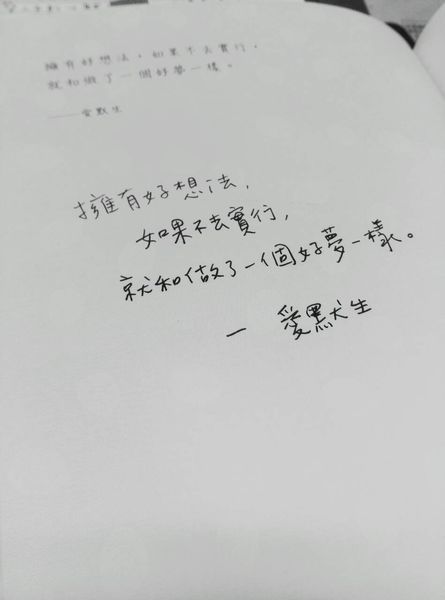 擁有好想法，如果不去實行，
就和做了一個好夢一樣。
——愛默生
擁有好想法，
如果不去實行，
就和做了一個好夢一樣。
— 愛默生